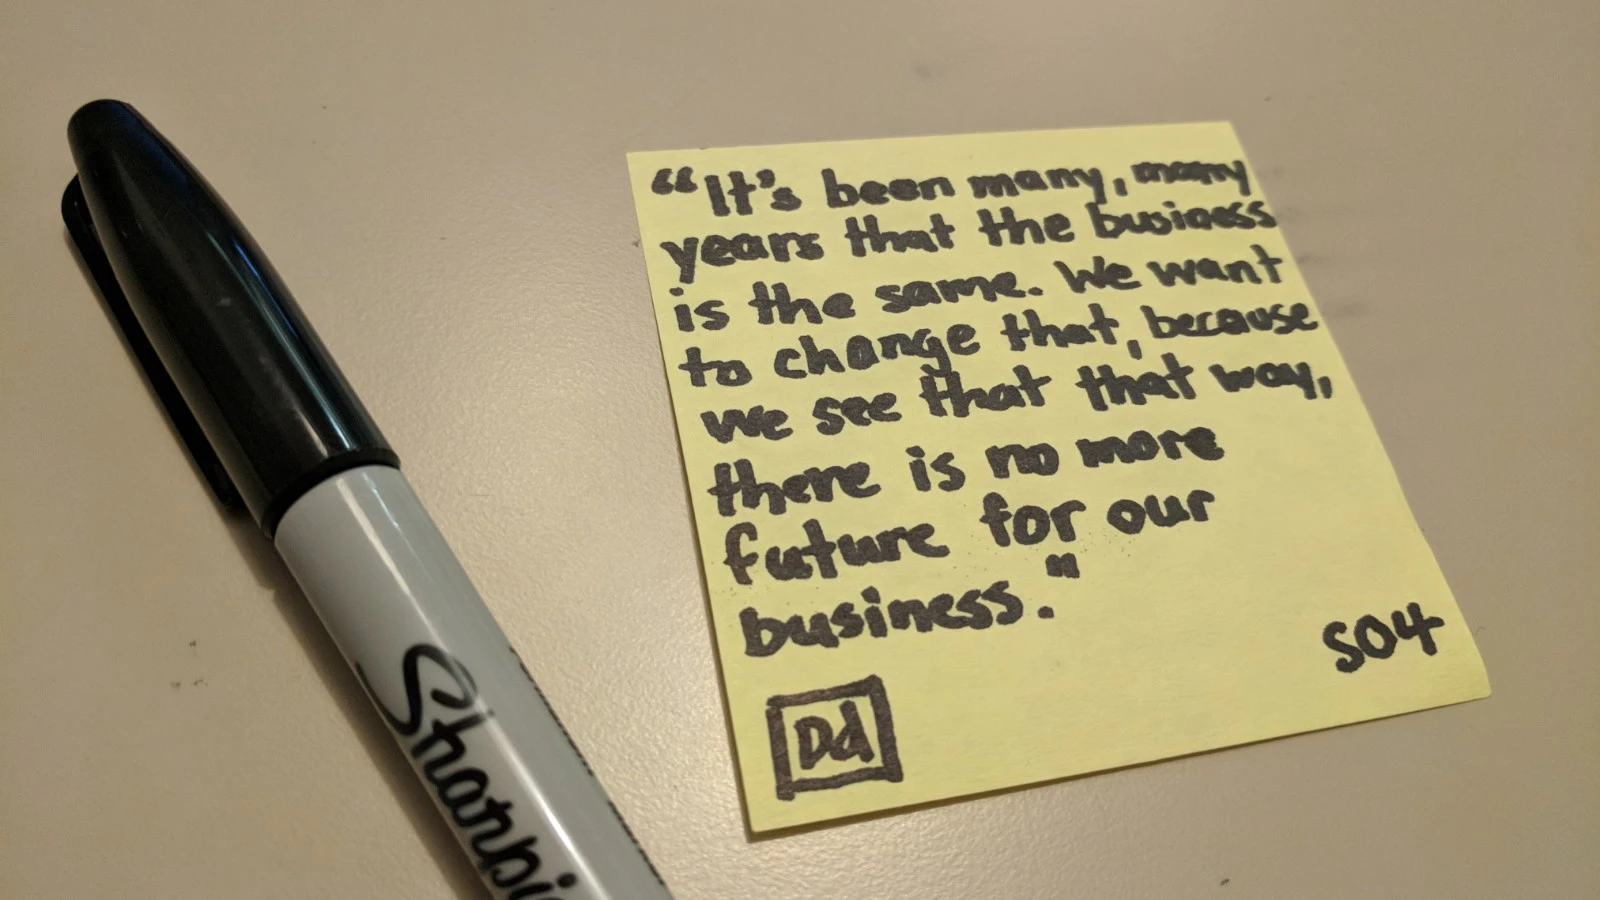 “It's been many, many
years that the business
is the same. We want
to change that, because
we see that that way,
there is no more
future for our
business."
SO4
Dd
Sharpie